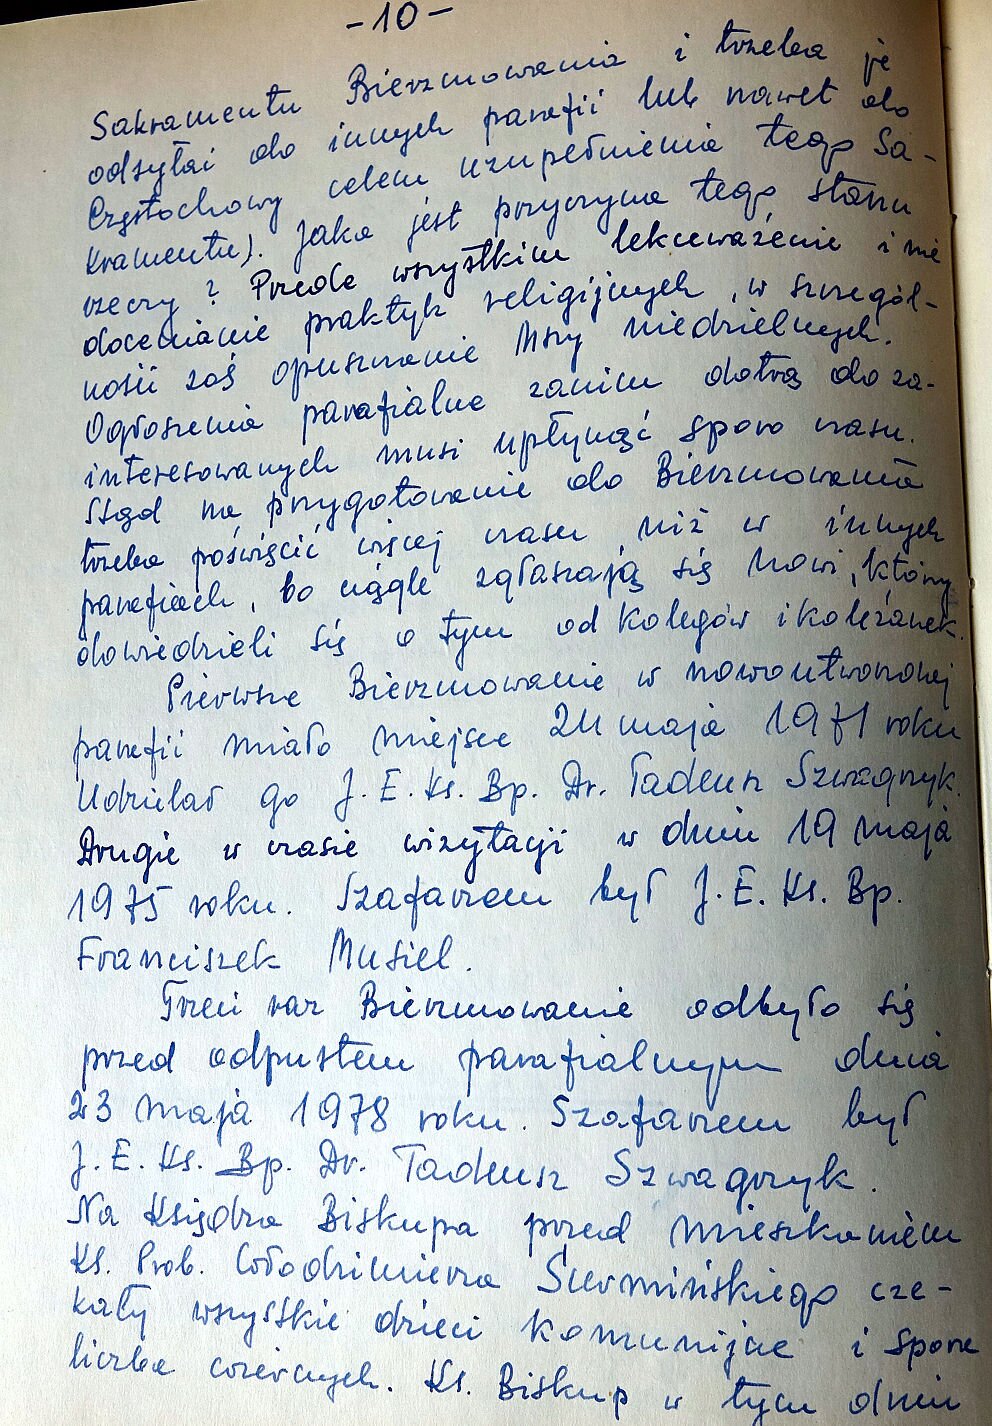 -10-
Sakramentu Bierzmowania i trzeba je
odsyłać do innych parafii lub nawet do
Częstochowy celem uzupełnienia tego Sa-
kramentu). Jaka jest przyczyna tego stanu
rzeczy? Przede wszystkim lekceważenie i nie
docenianie praktyk religijnych, w szczegól-
ności zaś opuszczanie Mszy niedzielnych.
Ogłoszenia parafialne zanim dotrą do za-
interesowanych musi upłynąć sporo czasu.
Stąd na przygotowanie do Bierzmowania
trzeba poświęcić więcej czasu niż w innych
parafiach, bo ciągle zgłaszają się nowi, którzy
dowiedzieli się o tym od kolegów i koleżanek.
Pierwsze Bierzmowanie w nowoutworzonej
parafii miało miejsce 24 maja 1971 roku
Udzielał go J. E. Ks. Bp. Dr. Tadeusz Szwagrzyk.
Drugie w czasie wizytacji w dniu 19 maja
1975 roku. Szafarzem był J. E. Ks. Bp.
Franciszek Musiel.
Trzeci raz Bierzmowanie odbyło się
przed odpustem parafialnym dnia
23 maja 1978 roku. Szafarzem był
J. E. Ks. Bp. Dr. Tadeusz Szwagrzyk.
Na Księdza Biskupa przed mieszkaniem
Ks. Prob. Włodzimierza Sieromińskiego cze-
kały wszystkie dzieci komunijne i spora
liczba wiernych. Ks. Biskup w tym dniu